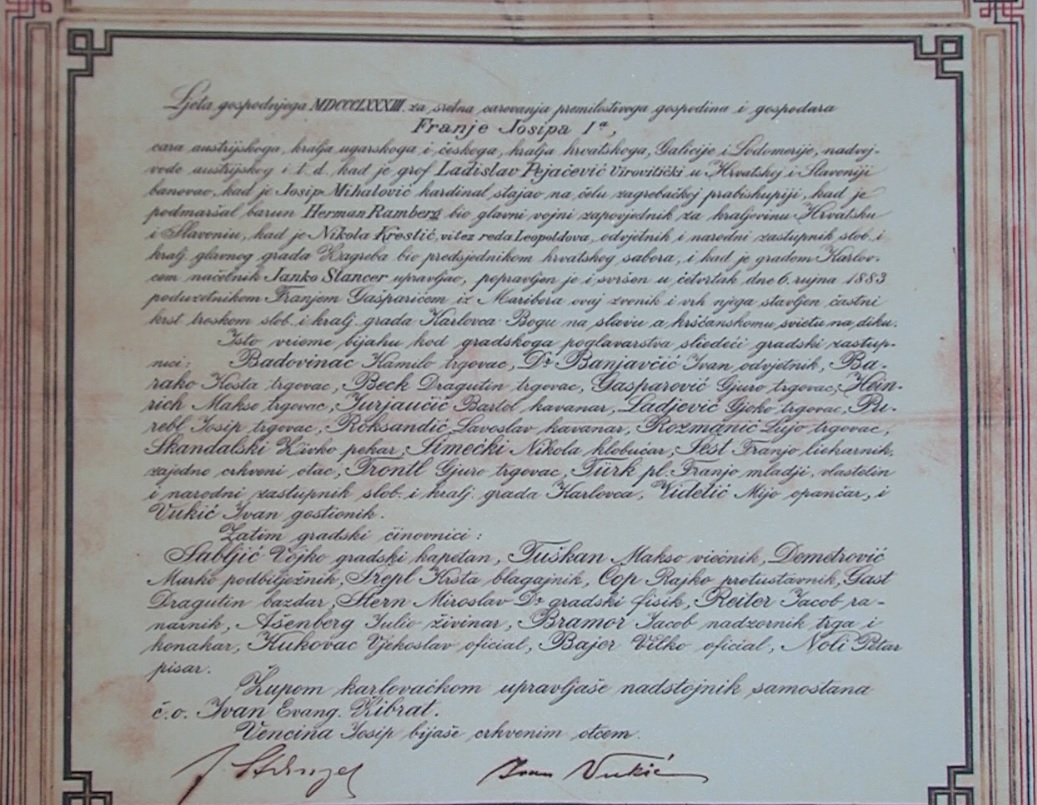 Ljeta gospodnjega MDCCCLXXXIII. za sretna carovanja premilostivoga gospodina i gospodara
Franje Josipa Iª,
cara austrijskoga, kralja ugarskoga i českoga, kralja hrvatskoga, Galicije i Lodomerije, nadvoj-
vode austrijskog i t. d. kad je grof Ladislav Pejačević Virovitički u Hrvatskoj i Slavoniji
banovao, kad je Josip Mihalović kardinal stajao na čelu zagrebačkoj prabiskupiji, kad je
podmaršal barun Herman Ramberg bio glavni vojni zapovjednik za kraljevinu Hrvatsku
i Slavoniu, kad je Nikola Krestić, vitez reda Leopoldova, odvjetnik i narodni zastupnik slob. i
kralj. glavnog grada Zagreba bio predsjednikom hrvatskog sabora, i kad je gradom Karlov-
cem načelnik Janko Stancer upravljao, popravljen je i svršen u četvrtak dne 6. rujna 1883
poduzetnikom Franjom Gasparićem iz Maribora ovaj zvonik i vrh njega stavljen častni
krst troskom slob. i kralj. grada Karlovca Bogu na slavu a kršćanskomu svietu na diku.
Isto vrieme bijahu kod gradskoga poglavarstva sliedeći gradski zastup-
nici: Badovinac Kamilo trgovac, Dr Banjavčić Ivan odvjetnik, Ba-
rako Kosta trgovac, Beck Dragutin trgovac, Gasparović Gjuro trgovac, Hein-
rich Makso trgovac, Jurjaučić Bartol kavanar, Ladjević Gjoko trgovac, Pu-
rebl Josip trgovac, Roksandić Lavoslav kavanar, Rozmanić Lujo trgovac,
Skandalski Živko pekar, Simećki Nikola klobučar, Šest Franjo liečharnik,
zajedno crkveni otac, Trontl Gjuro trgovac, Türk pl. Franjo mladji, vlastelin
i narodni zastupnik slob. i kralj. grada Karlovca, Videtić Mijo opančar, i
Vukić Ivan gostionik.
Zatim gradski činovnici:
Sabljić Vojko gradski kapetan, Tuškan Makso viećnik, Demetrović
Marko podbilježnik, Srepl Krsta blagajnik, Čop Rajko protustavnik, Gast
Dragutin bazdar, Stern Miroslav Dr gradski fisik, Reiter Jacob ra-
narnik, Ašenberg Julio živinar, Bramor Jacob nadzornik trga i
konakar, Kukovac Vjekoslav oficial, Bajer Vilko oficial, Noli Petar
pisar.
Župom karlovačkom upravljaše nadstojnik samostana
č. o. Ivan Evang. Ribrat.
Vencina Josip bijaše crkvenim otcem.
Ivan Vukić